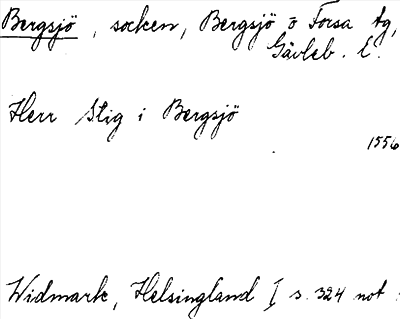 Bergsjö, socken, Bergsjö o Forsa tg,
Gävleb. L.
Herr Stig i Bergsjö
1556
Widmark, Helsingland I s. 324 not